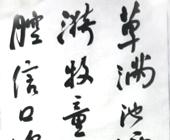 草满池
漪牧童
腔信口